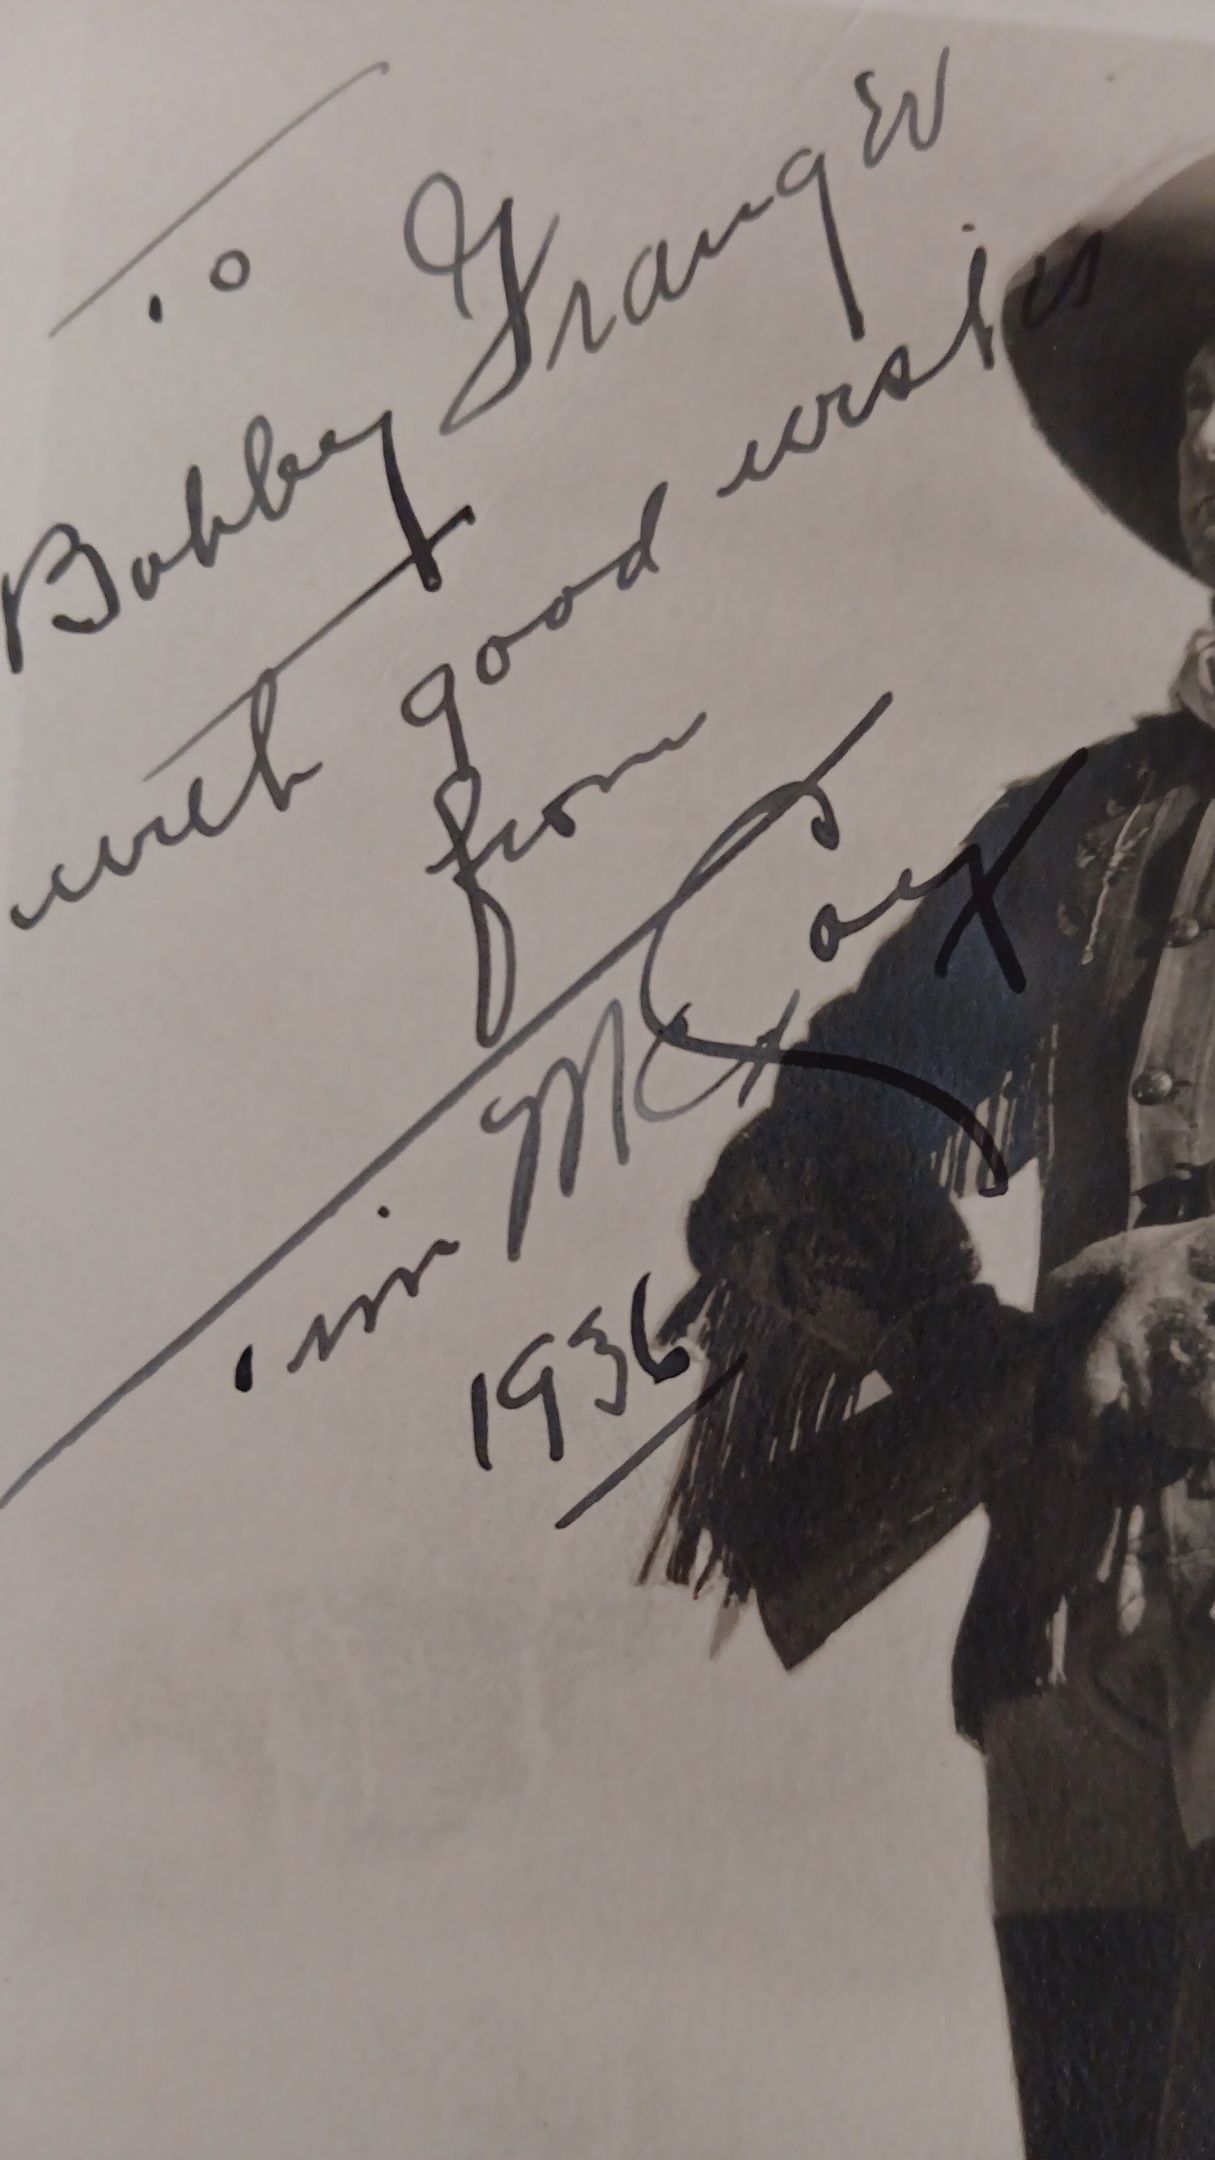 To
Bobby Granger
with good wishes
from
Tim McCoy
1936